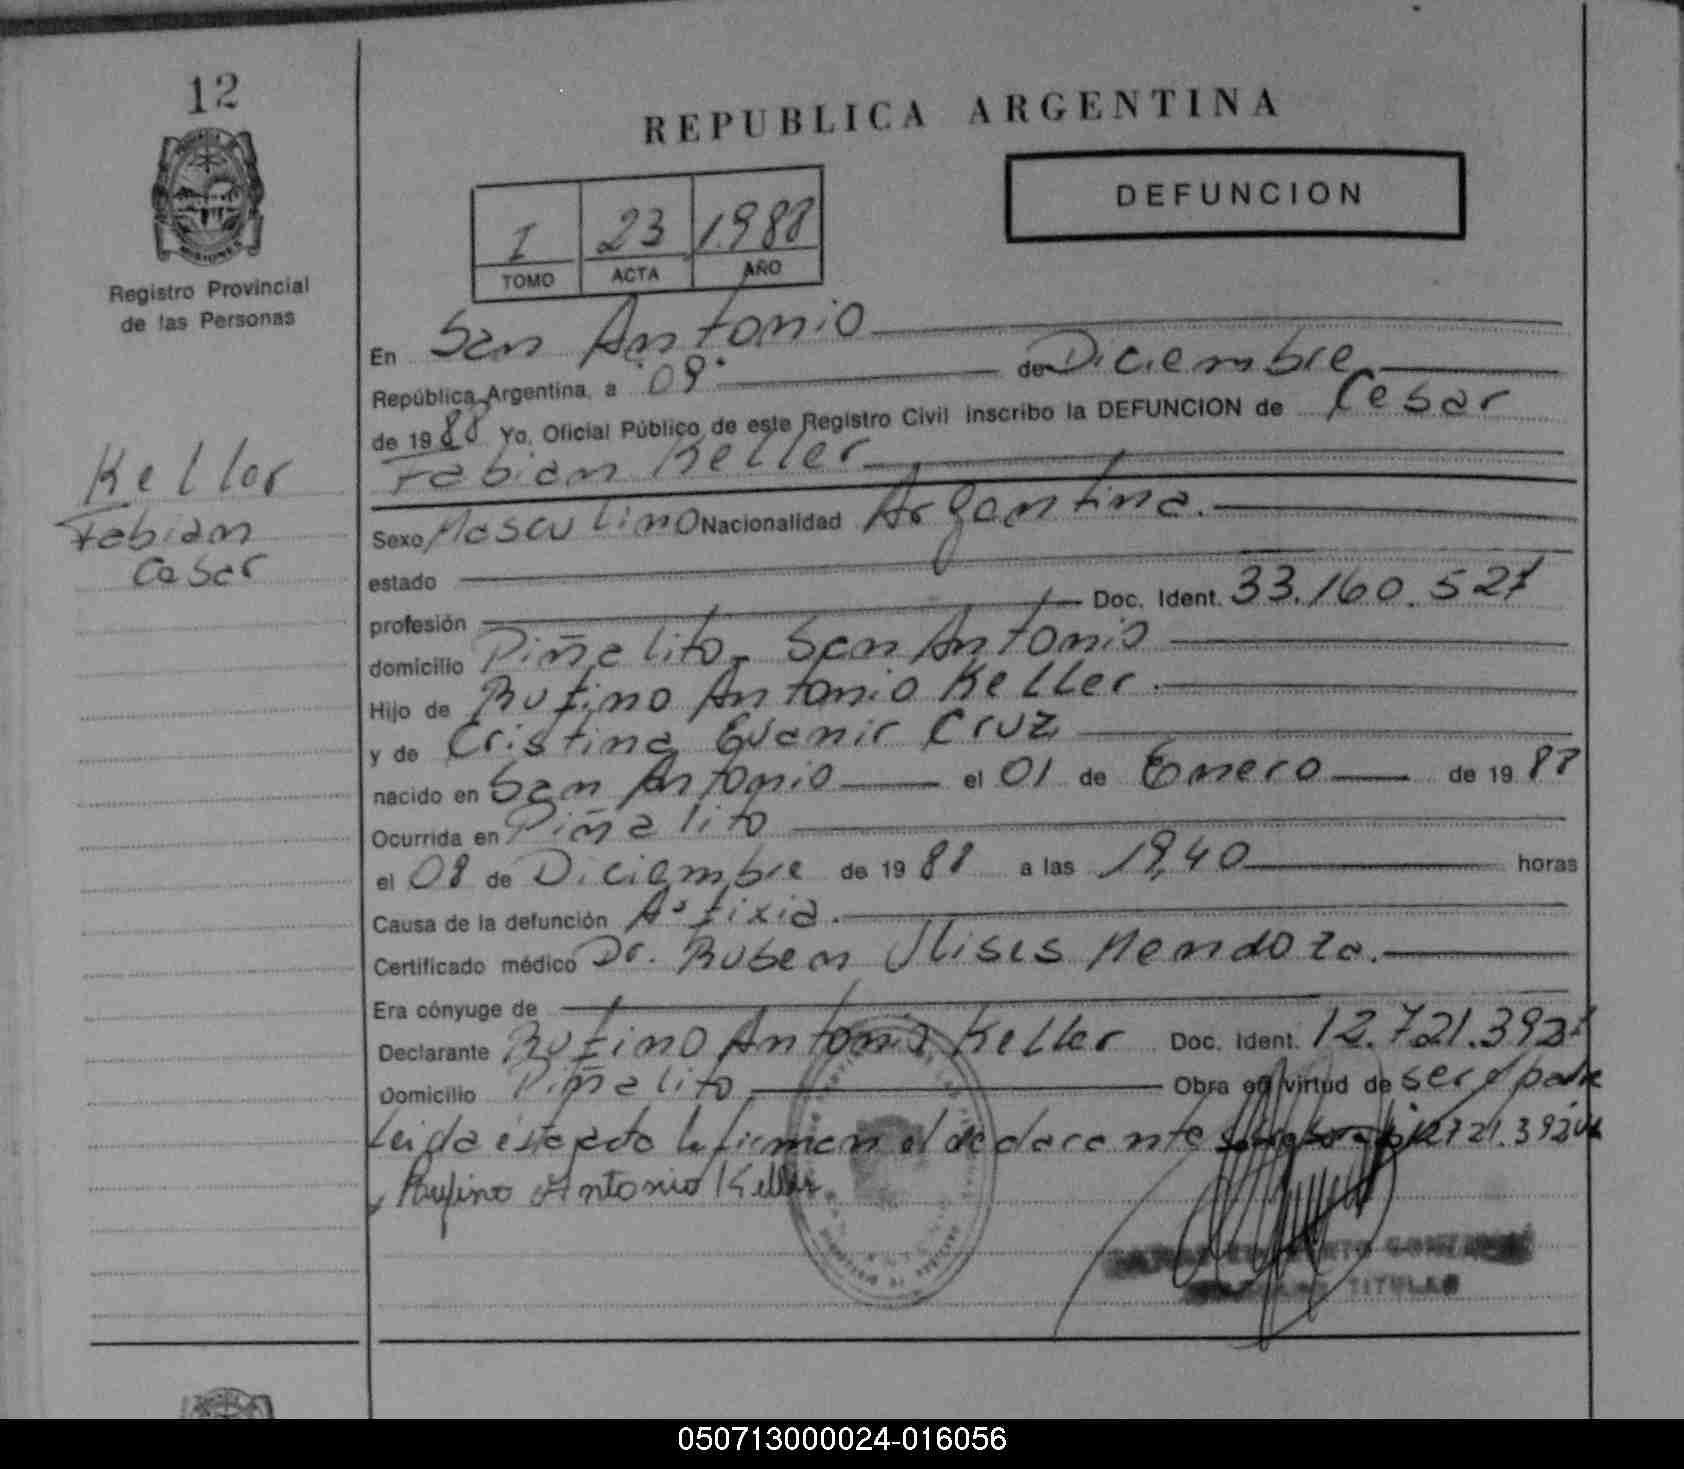 12
REPUBLICA ARGENTINA
DEFUNCION
I 23 1.988
TOMO ACTA AÑO
MISIONES
Registro Provincial
de las Personas
Keller
Fabian
Cesar
En San Antonio
República Argentina, a 09 de Diciembre
de 1988 Yo, Oficial Público de este Registro Civil inscribo la DEFUNCION de Cesar
Fabian Keller
Sexo Masculino Nacionalidad Argentina.
estado
profesión Doc. Ident. 33.160.527
domicilio Piñalito - San Antonio
Hijo de Rufino Antonio Keller.
y de Cristina Evanir Cruz
nacido en San Antonio el 01 de Enero de 19
Ocurrida en Piñalito
el 08 de Diciembre de 1988 a las 19,40 horas
Causa de la defunción Asfixia.
Certificado médico Dr. Ruben Ulises Mendoza.
Era cónyuge de
Declarante Rufino Antonio Keller Doc. Ident. 12.721.392
Domicilio Piñalito Obra en virtud de ser el padre
Leida esta acta la firman el declarante
Rufino Antonio Keller
TITULAR
050713000024-016056